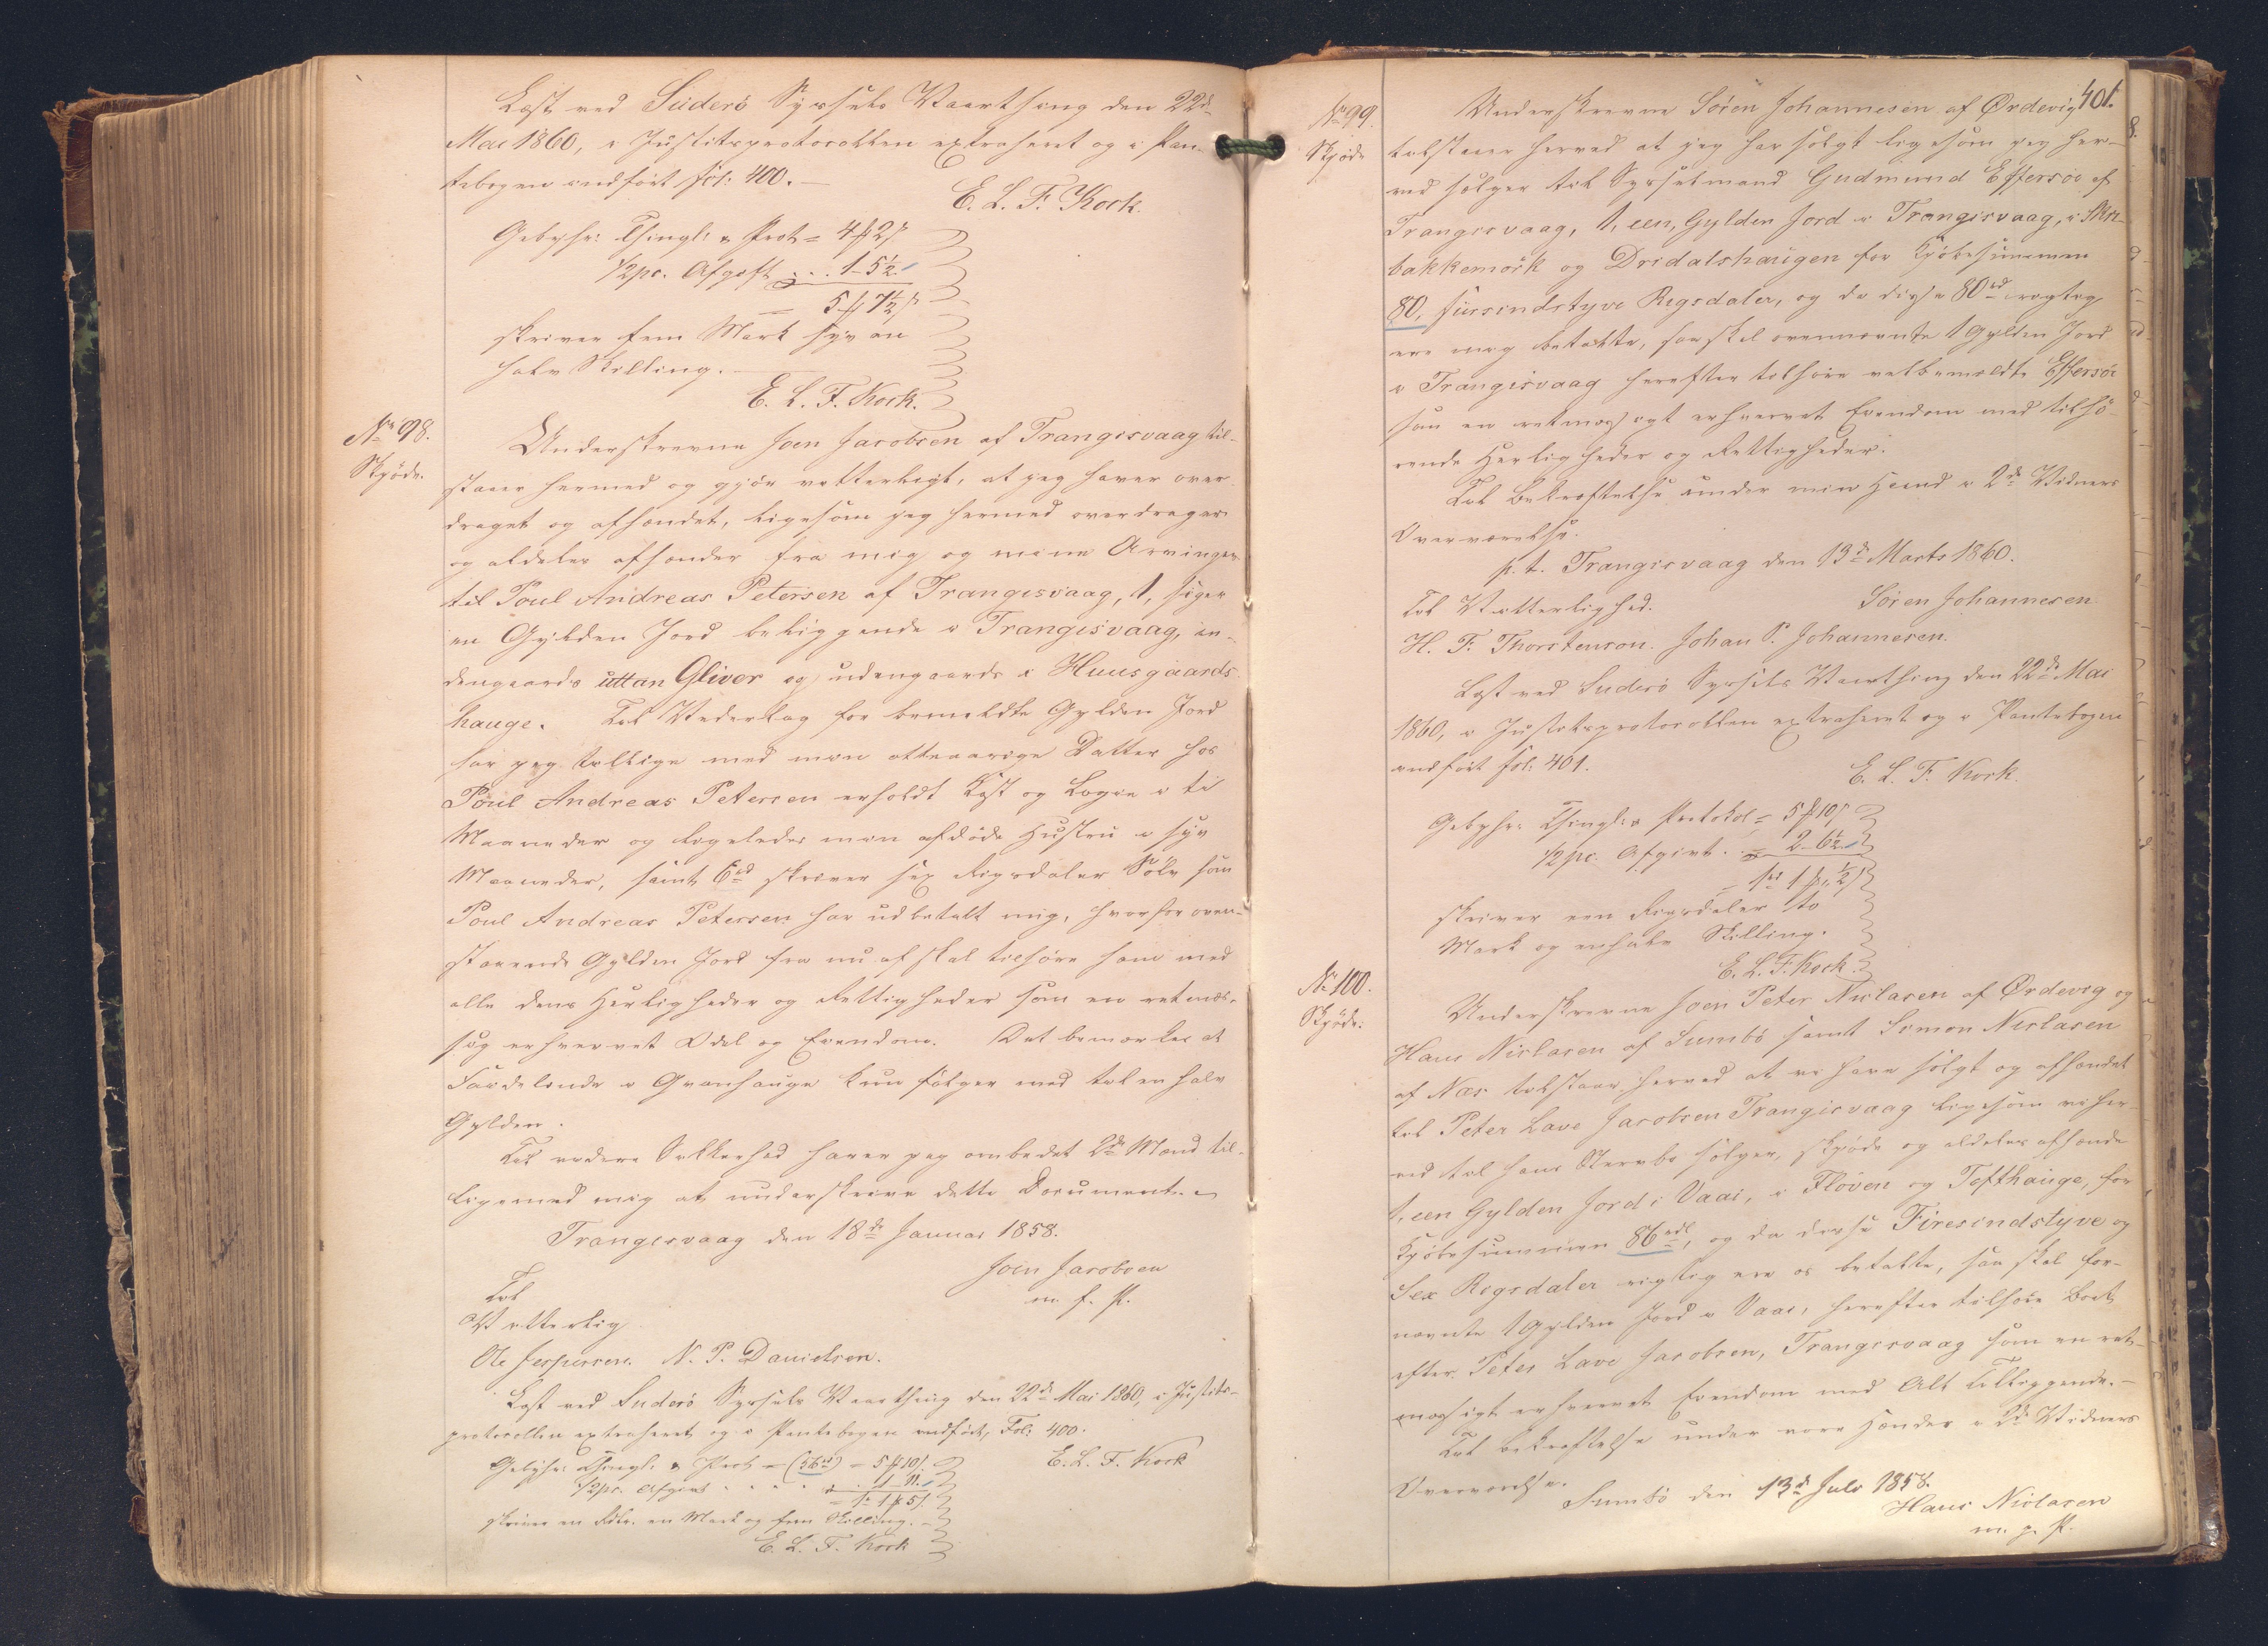 Læst ved Süderø Syssels Vaarthing den 22d
Mai 1860, i Justitsprotocollen extraheret og i Pan-
tebogen indført fol: 400.
E. L. F. Kock.
Gebyhr: Thingl: & Prot = 4 ₰ 2 s
1/2 pc. Afgift . . . 1 - 5½
5 ₰ 7½ s
skriver fem Mark syv en
halv Skilling.
E. L. F. Kock.
No 98.
Skjøde.
Underskrevne Joen Jacobsen af Trangisvaag til-
staaer hermed og gjør vitterligt, at jeg haver over-
draget og afhændet, ligesom jeg hermed overdrager
og aldeles afhænder fra mig og mine Arvinger
til Poul Andreas Petersen af Trangisvaag, 1, siger
en Gylden Jord beliggende i Trangisvaag, in-
dengaards uttan Gliver og udengaards i Huusgaards-
hauge. Til Vederlag for bemeldte Gylden Jord
har jeg tillige med min otteaarige Datter hos
Poul Andreas Petersen erholdt Kost og Logie i ti
Maaneder og ligeledes min afdøde Hustru i syv
Maaneder, samt 6rd skriver sex Rigsdaler Sølv som
Poul Andreas Petersen har udbetalt mig, hvorfor oven-
staaende Gylden Jord fra nu af skal tilhøre ham med
alle dens Herligheder og Rettigheder som en retmæs-
sig erhvervet Odel og Eiendom. Det bemærkes at
Faadelende i Gvanhauge kun følger med til en halv
Gylden.
Til videre Sikkerhed haver jeg ombedet 2de Mænd til-
ligemed mig at underskrive dette Document.
Trangesvaag den 18de Januar 1858.
Joen Jacobsen
m. f. P.
Til
Vitterlig
Ole Jespersen. N. P. Danielsen.
Læst ved Suderø Syssels Vaarthing den 22de Mai 1860, i Justits-
protocollen extraheret og i Pantebogen indført, Fol: 400.
E. L. F. Kock
Gebyhr: Thingl: & Prot = (56rd) = 5 ₰ 10 s.
1/2 pc. Afgivt . . . . 1 - 11.
= 1rd 1 ₰ 5 s.
skriver en Rdlr. en Mark og fem Skilling.
E. L. F. Kock
401.
No 99.
Skjøde
Underskrevne Søren Johannesen af Ørdevig
tilstaaer herved at jeg har solgt ligesom jeg her-
ved sælger til Sysselmand Gudmund Effersøe af
Trangisvaag, 1, een, Gylden Jord i Trangisvaag, i
bakkemørk og Dridalshaugen for Kjøbesummen
80, fiirsindstyve Rigsdaler, og da disse 80rd rigtig
ere mig betalte, saa skal ovennævnte 1 Gylden Jord
i Trangisvaag herefter tilhøre velbemeldte Effersøe
som en retmæssigt erhvervet Eiendom med tilhø-
rende Herligheder og Rettigheder.
Til Bekræftelse under min Haand i 2de Vidners
Overværelse.
p. t. Trangisvaag den 13de Marts 1860.
Søren Johannesen
Til Vitterlighed.
H. F. Thorstenson. Johan P. Johannesen.
Læst ved Suderø Syssels Vaarthing den 22de Mai
1860, i Justitsprotocollen extraheret og i Pantebogen
indført fol: 401.
E. L. F. Kock.
Gebyhr: Thingl: & Protokol = 5 ₰ 10 s
1/2 pc. Afgivt . . = 2 - 6½
= 1rd 1 ₰ ½ s
skriver een Rigsdaler to
Mark og en halv Skilling.
E. L. F. Kock.
No 100.
Skjøde.
Underskrevne Joen Peter Niclasen af Ørdevig og
Hans Niclasen af Sumbø samt Simon Niclasen
af Næs tilstaar herved at vi have solgt og afhændet
til Peter Lave Jacobsen Trangisvaag ligesom vi her-
ved til hans Stervbo sælger, skjøde og aldeles afhænde
1, een Gylden Jord i Vaai, i Fløven og Tefthauge, for
Kjøbesummen 86rdl, og da disse Firesindstyve og
Sex Rigsdaler rigtig ere os betalte, saa skal for-
nævnte 1 Gylden Jord i Vaai, herefter tilhøre Boet
efter Peter Lave Jacobsen, Trangisvaag som en ret-
mæssigt erhvervet Eiendom med Alt tilliggende.
Til Bekræftelse under vore Hænder i 2de Vidners
Overværelse.
Sumbø den 13de Juli 1858.
Hans Niclasen
m. p. P.